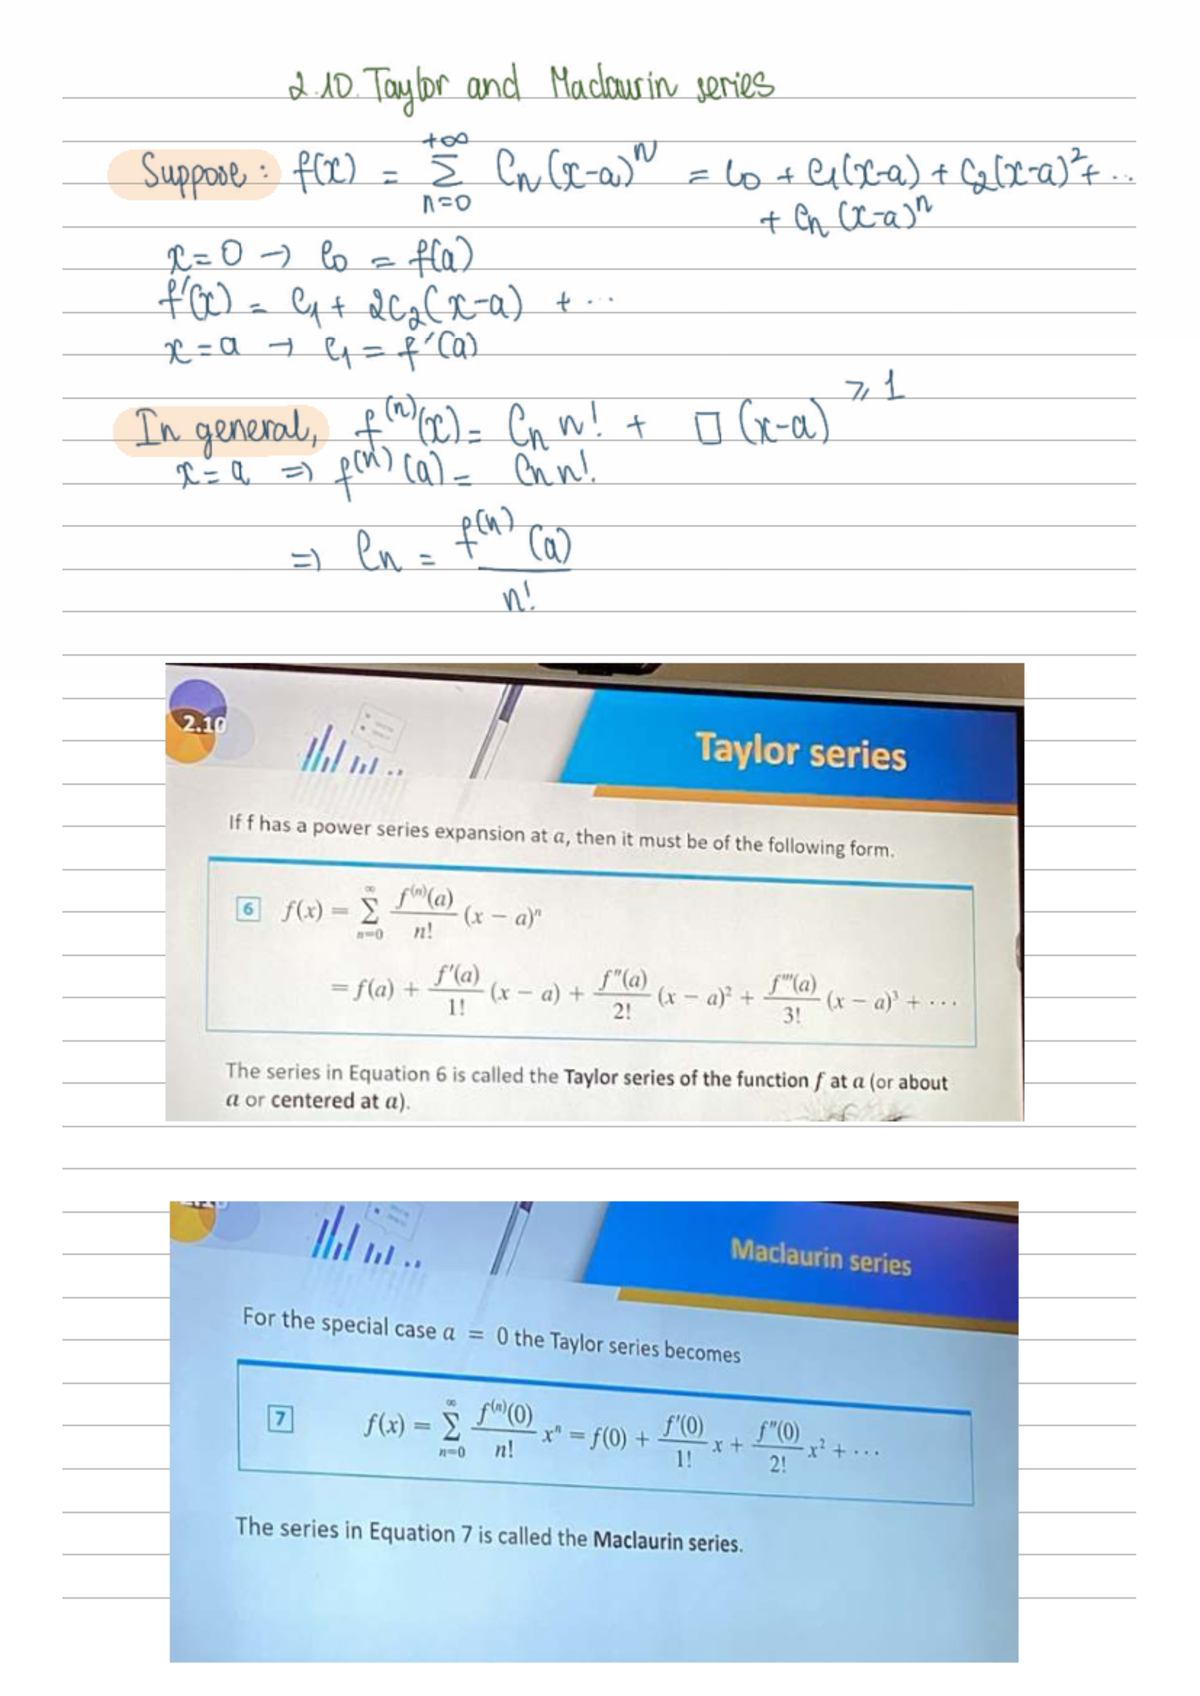 2.10. Taylor and Maclaurin series
Suppose: f(x) = +∞ Σ n=0 Cn (x-a)^n = C0 + C1(x-a) + C2(x-a)^2 + ...
+ Cn (x-a)^n
x=0 → C0 = f(a)
f'(x) = C1 + 2C2(x-a) + ...
x=a → C1 = f'(a)
In general, f^(n)(x) = Cn n! + □ (x-a)^⩾1
x=a ⇒ f^(n)(a) = Cn n!
⇒ Cn = f^(n)(a) / n!
2.10
Taylor series
If f has a power series expansion at a, then it must be of the following form.
6 f(x) = ∞ Σ n=0 f^(n)(a) / n! (x − a)^n
= f(a) + f'(a)/1! (x − a) + f''(a)/2! (x − a)² + f'''(a)/3! (x − a)³ + ···
The series in Equation 6 is called the Taylor series of the function f at a (or about
a or centered at a).
Maclaurin series
For the special case a = 0 the Taylor series becomes
7 f(x) = ∞ Σ n=0 f^(n)(0) / n! x^n = f(0) + f'(0)/1! x + f''(0)/2! x² + ···
The series in Equation 7 is called the Maclaurin series.